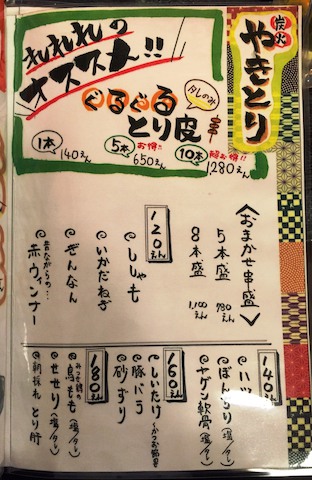 炭火
やきとり
れれれの
オススメ!!
ぐるぐる
とり皮
串
タレのみ
1本
140えん
5本
お得!!
650えん
10本
超お得!!
1280えん
〈おまかせ串盛〉
5本盛 780えん
8本盛 1,100えん
120えん
ししゃも
いかだねぎ
ぎんなん
昔ながらの…
赤ウィンナー
140えん
ハツ
ぼんちり(塩/タレ)
ヤゲン軟骨(塩/タレ)
160えん
しいたけ〜かつお節
豚バラ
砂ずり
180えん
みつせ鶏の
鳥もも(塩/タレ)
せせり(塩/タレ)
朝採れ とり肝